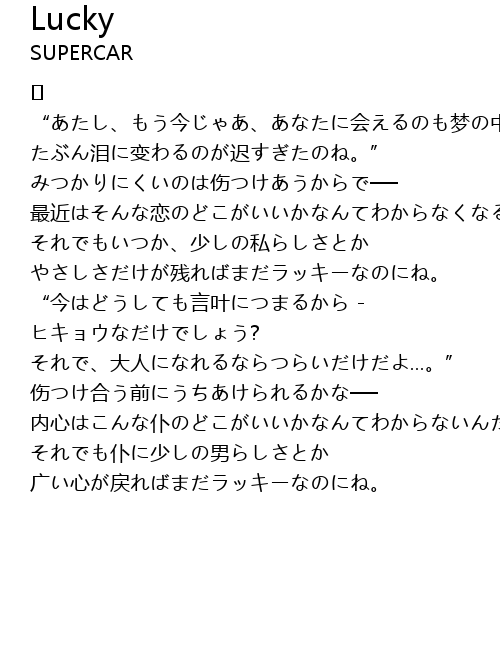 Lucky
SUPERCAR
“あたし、もう今じゃあ、あなたに会えるのも梦の中
たぶん泪に变わるのが迟すぎたのね。”
みつかりにくいのは伤つけあうからで──
最近はそんな恋のどこがいいかなんてわからなくなる
それでもいつか、少しの私らしさとか
やさしさだけが残ればまだラッキーなのにね。
“今はどうしても言叶につまるから -
ヒキョウなだけでしょう?
それで、大人になれるならつらいだけだよ…。”
伤つけ合う前にうちあけられるかな──
内心はこんな仆のどこがいいかなんてわからないんだ
それでも仆に少しの男らしさとか
广い心が戻ればまだラッキーなのにね。